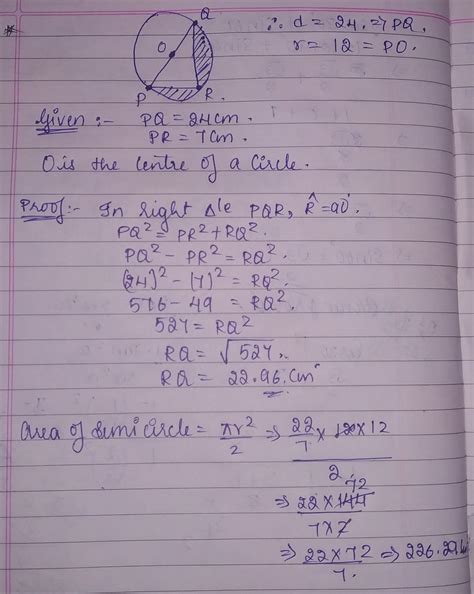 *
Q
O
P
R.
∴ d = 24. ⇒ PQ.
r = 12 = PO.
Given :- PQ = 24cm.
PR = 7cm.
O is the centre of a Circle.
Proof:- In Right Δ'le PQR, R̂ = 90°.
PQ² = PR² + RQ².
PQ² - PR² = RQ².
(24)² - (7)² = RQ².
576 - 49 = RQ².
527 = RQ²
RQ = √527.
RQ = 22.96.cm
Area of Semi Circle = πr²/2 ⇒ 22/7 × 12 × 12
2
72
⇒ 22 × 144
7 × 2
⇒ 22 × 72 / 7. ⇒ 226.29